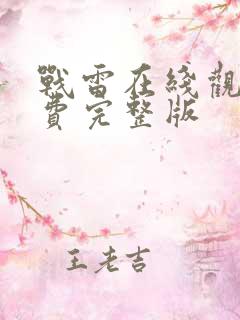 戰雷在綫觀
費完整版
王老吉